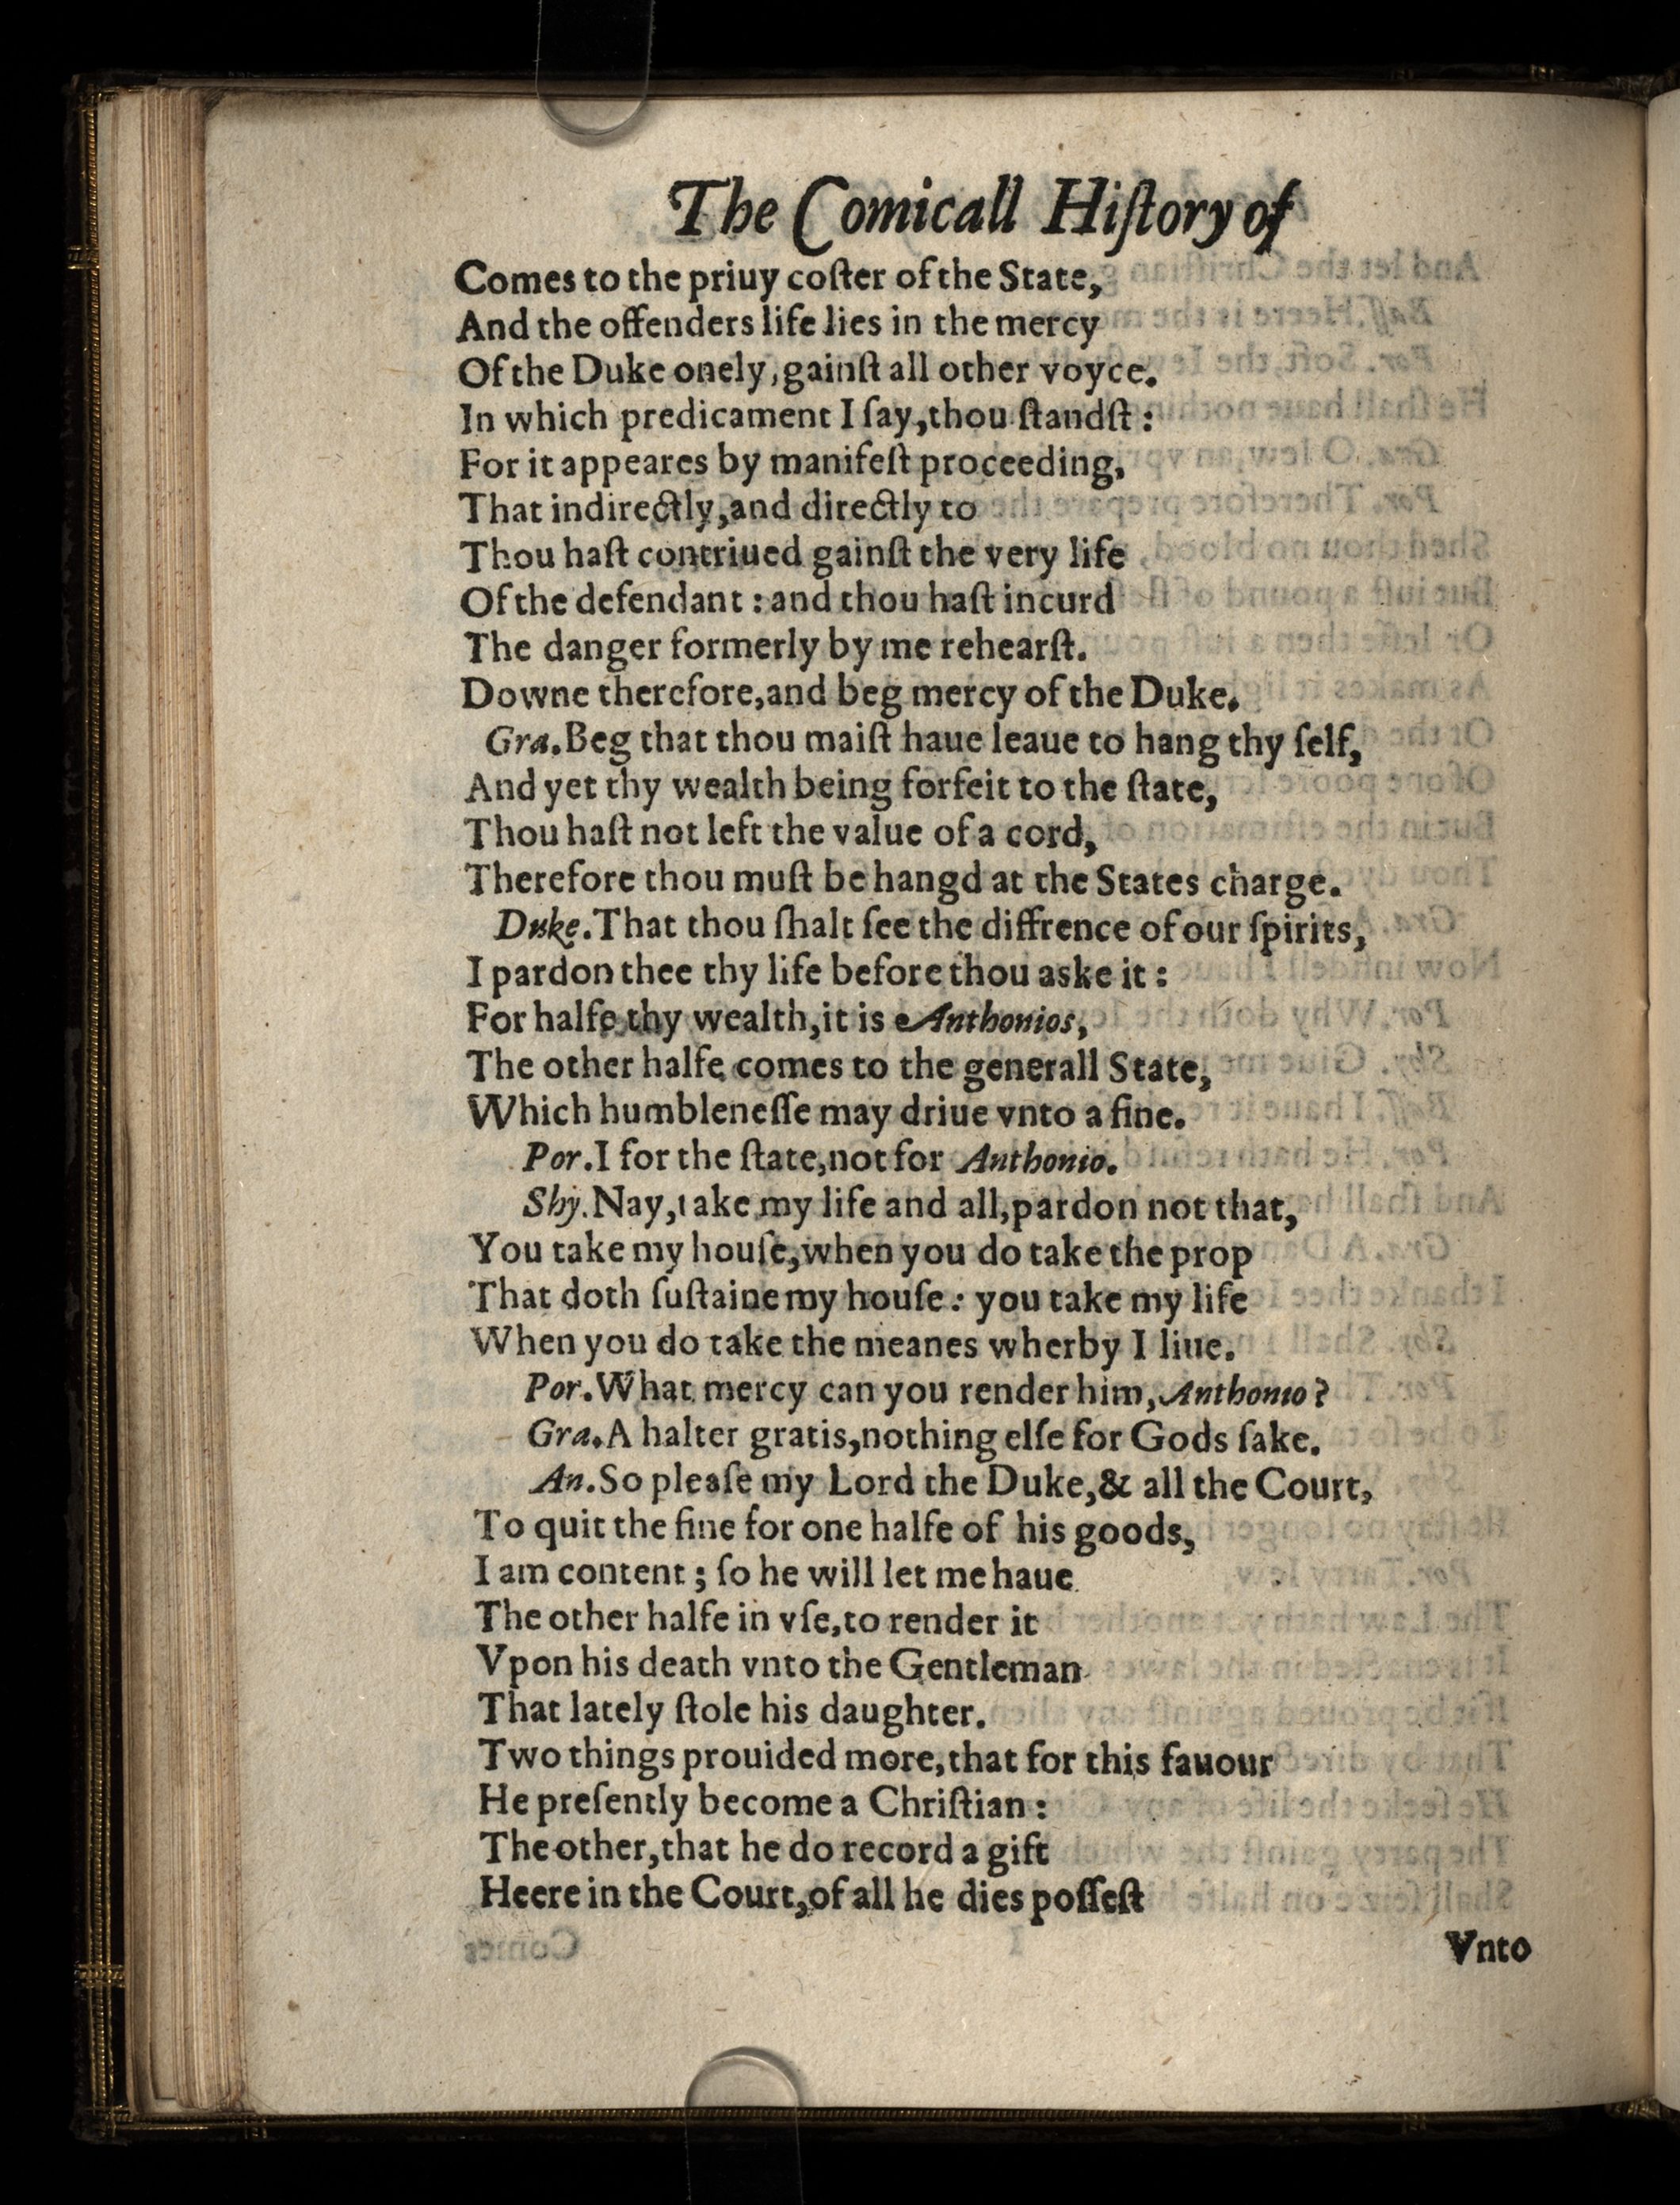 The Comicall Hiſtory of
Comes to the priuy coſter of the State,
And the offenders life lies in the mercy
Of the Duke onely, gainſt all other voyce.
In which predicament I ſay, thou ſtandſt:
For it appeares by manifeſt proceeding,
That indirectly, and directly to
Thou haſt contriued gainſt the very life
Of the defendant: and thou haſt incurd
The danger formerly by me rehearſt.
Downe therefore, and beg mercy of the Duke.
Gra. Beg that thou maiſt haue leaue to hang thy ſelf,
And yet thy wealth being forfeit to the ſtate,
Thou haſt not left the value of a cord,
Therefore thou muſt be hangd at the States charge.
Duke. That thou ſhalt ſee the diffrence of our ſpirits,
I pardon thee thy life before thou aske it:
For halfe thy wealth, it is Anthonios,
The other halfe comes to the generall State,
Which humbleneſſe may driue vnto a fine.
Por. I for the ſtate, not for Anthonio.
Shy. Nay, take my life and all, pardon not that,
You take my houſe, when you do take the prop
That doth ſuſtaine my houſe: you take my life
When you do take the meanes wherby I liue.
Por. What mercy can you render him, Anthonio?
Gra. A halter gratis, nothing elſe for Gods ſake.
An. So pleaſe my Lord the Duke, & all the Court,
To quit the fine for one halfe of his goods,
I am content; ſo he will let me haue
The other halfe in vſe, to render it
Vpon his death vnto the Gentleman
That lately ſtole his daughter.
Two things prouided more, that for this fauour
He preſently become a Chriſtian:
The other, that he do record a gift
Heere in the Court, of all he dies poſſeſt
Vnto